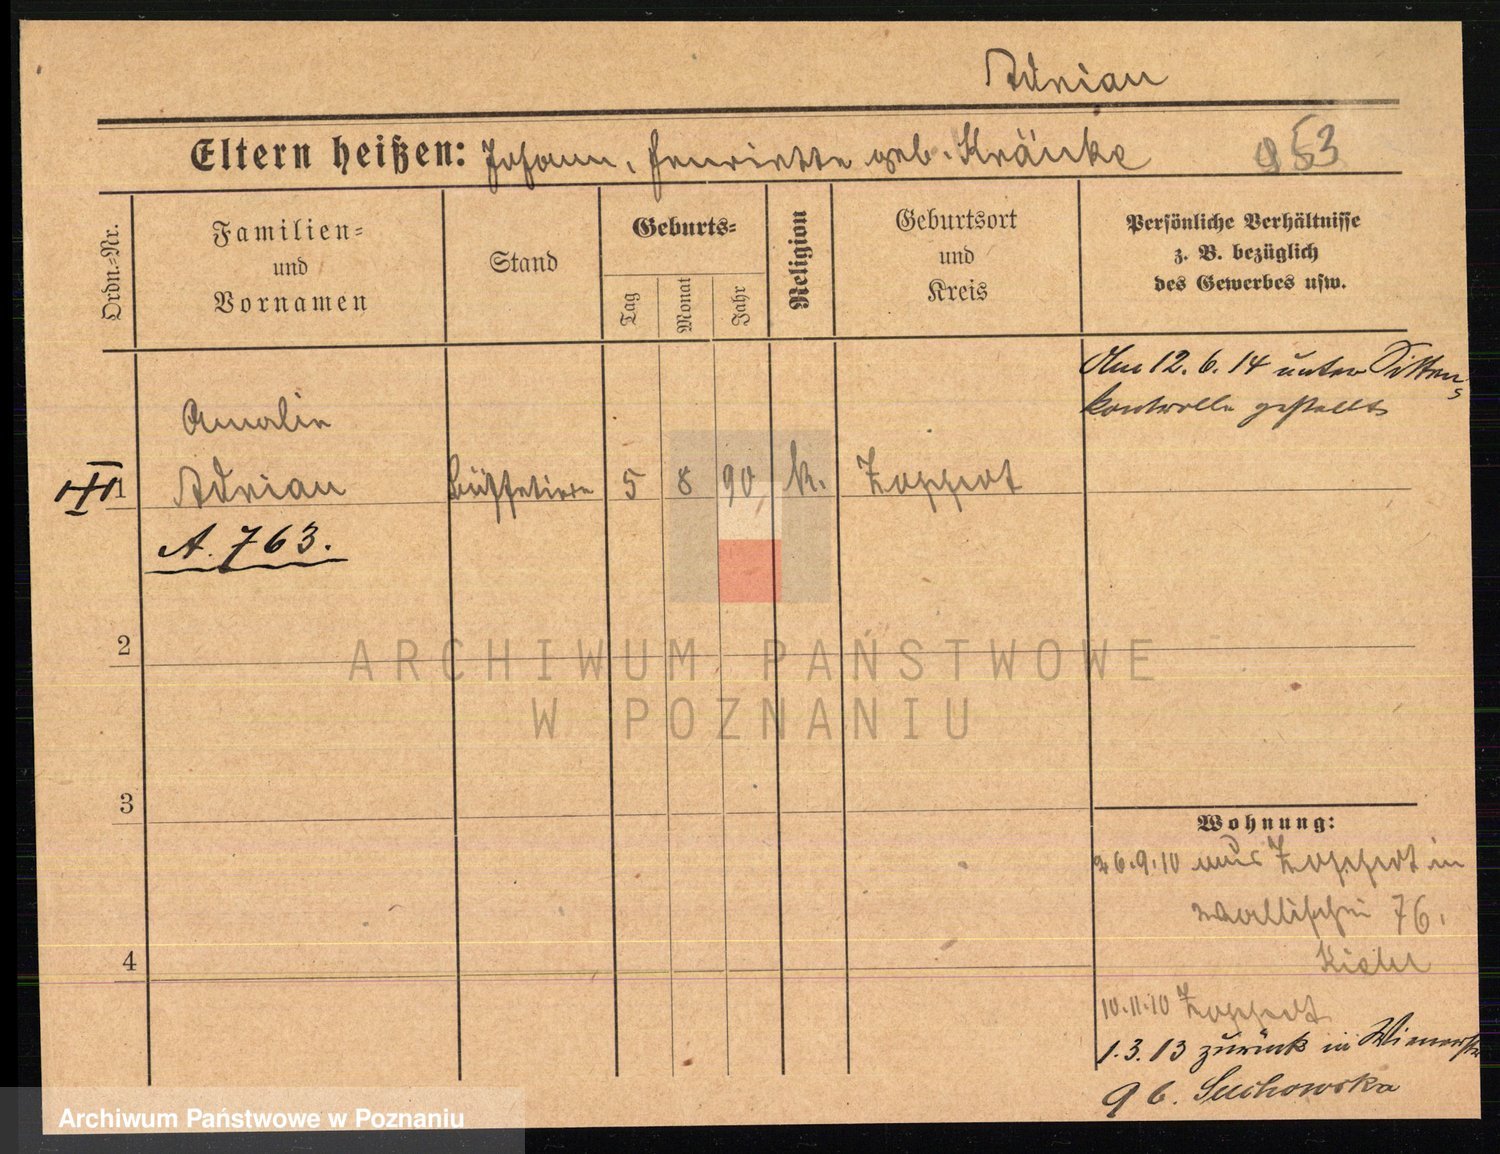 Adrian
Eltern heißen: Johann, Henriette geb. Kränke 953
Ordn.-Nr.
Familien-
und
Vornamen
Stand
Geburts-
Tag
Monat
Jahr
Religion
Geburtsort
und
Kreis
Persönliche Verhältnisse
z. B. bezüglich
des Gewerbes usw.
Am 12. 6. 14 unter Sitten-
kontrolle gestellt
Amalie
1 Adrian Büffetiere 5 8 90 k. Zoppot
A. 763.
2
3
4
Wohnung:
26.9.10 aus Zoppot in
Wallischei 76.
10.11.10 Zoppot
1.3.13 zurück in
9 b. Suchowska
ARCHIWUM PAŃSTWOWE
W POZNANIU
Archiwum Państwowe w Poznaniu